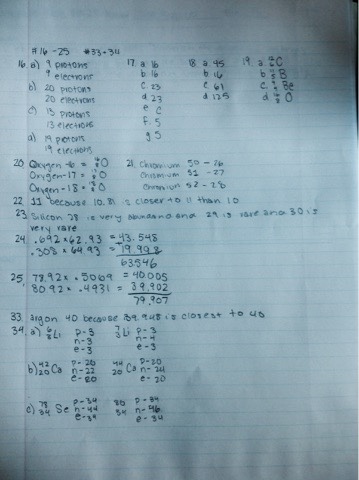 #16-25 #33+34
16 a) 9 protons 17. a 16 18. a 45 19. a C
9 electrons b 16 b 16 b B
b) 20 protons c 23 c 61 c Be
20 electrons d 23 d 125 d O
c) 13 protons e C
13 electrons f. S
d) 19 protons g S
19 electrons
20. Oxygen-16 = O 21. Chromium 50 - 26
Oxygen-17 = O Chromium 51 - 27
Oxygen-18 = O Chromium 52 - 28
22 11 because 10.81 is closer to 11 than 10
23 Silicon 28 is very abundant and 29 is rare and 30 is
very rare
24. .692 x 62.93 = 43.548
.308 x 64.93 = 19.998
63.546
25. 78.92 x .5069 = 40.005
80.92 x .4931 = 39.902
79.907
33. argon 40 because 39.948 is closest to 40
34. a) 6 3 Li p-3 7 3 Li p-3
n-3 n-4
e-3 e-3
b) 42 20 Ca p-20 44 20 Ca p-20
n-22 n-24
e-20 e-20
c) 78 34 Se p-34 80 34 p-34
n-44 n-46
e-34 e-34